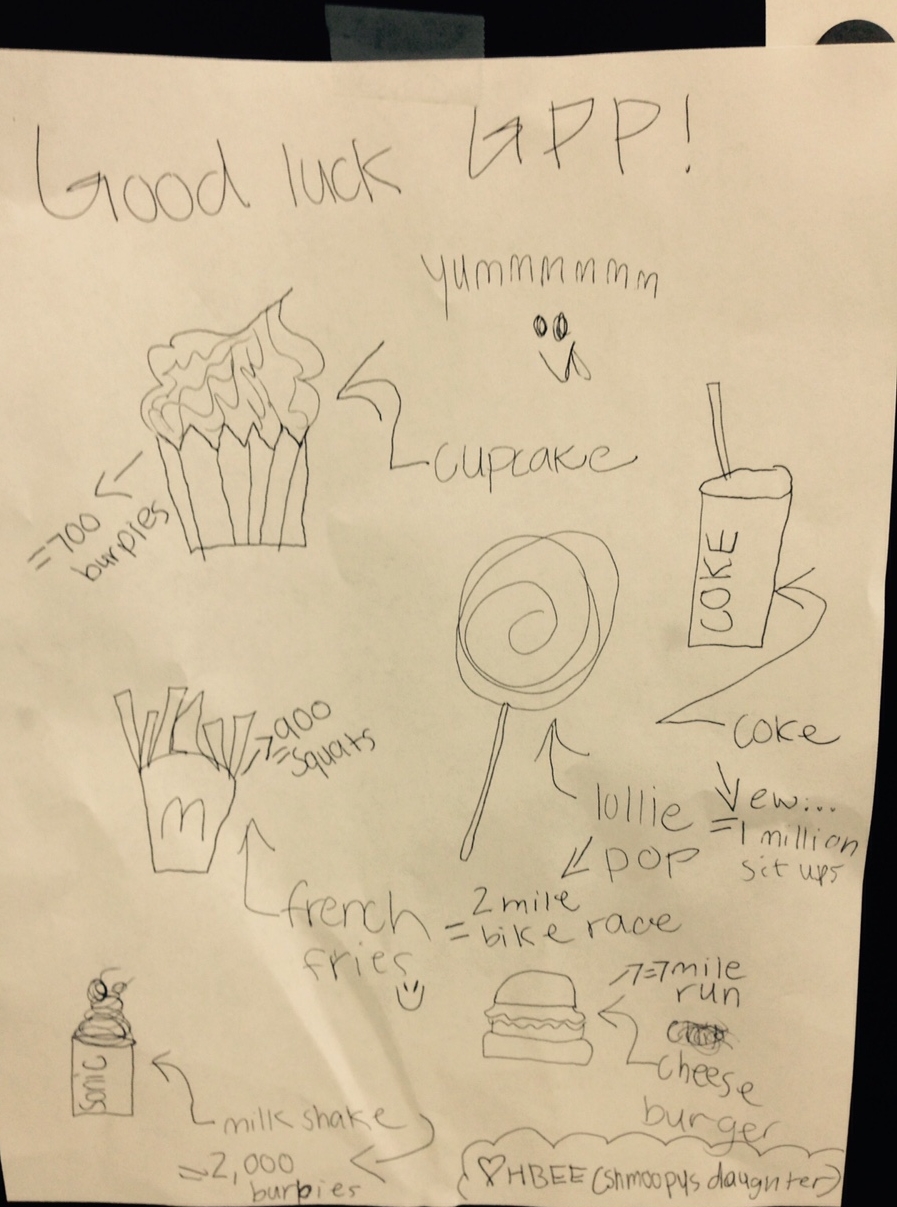 Good luck GPP!
yummmmmm
cupcake
=700
burpies
COKE
coke
ew...
=1 million
sit ups
=900
squats
M
lollie
pop
=2 mile
bike race
french
fries
=7 mile
run
cheese
burger
Sonic
milk shake
=2,000
burpies
♡HBEE (shmoopys daughter)